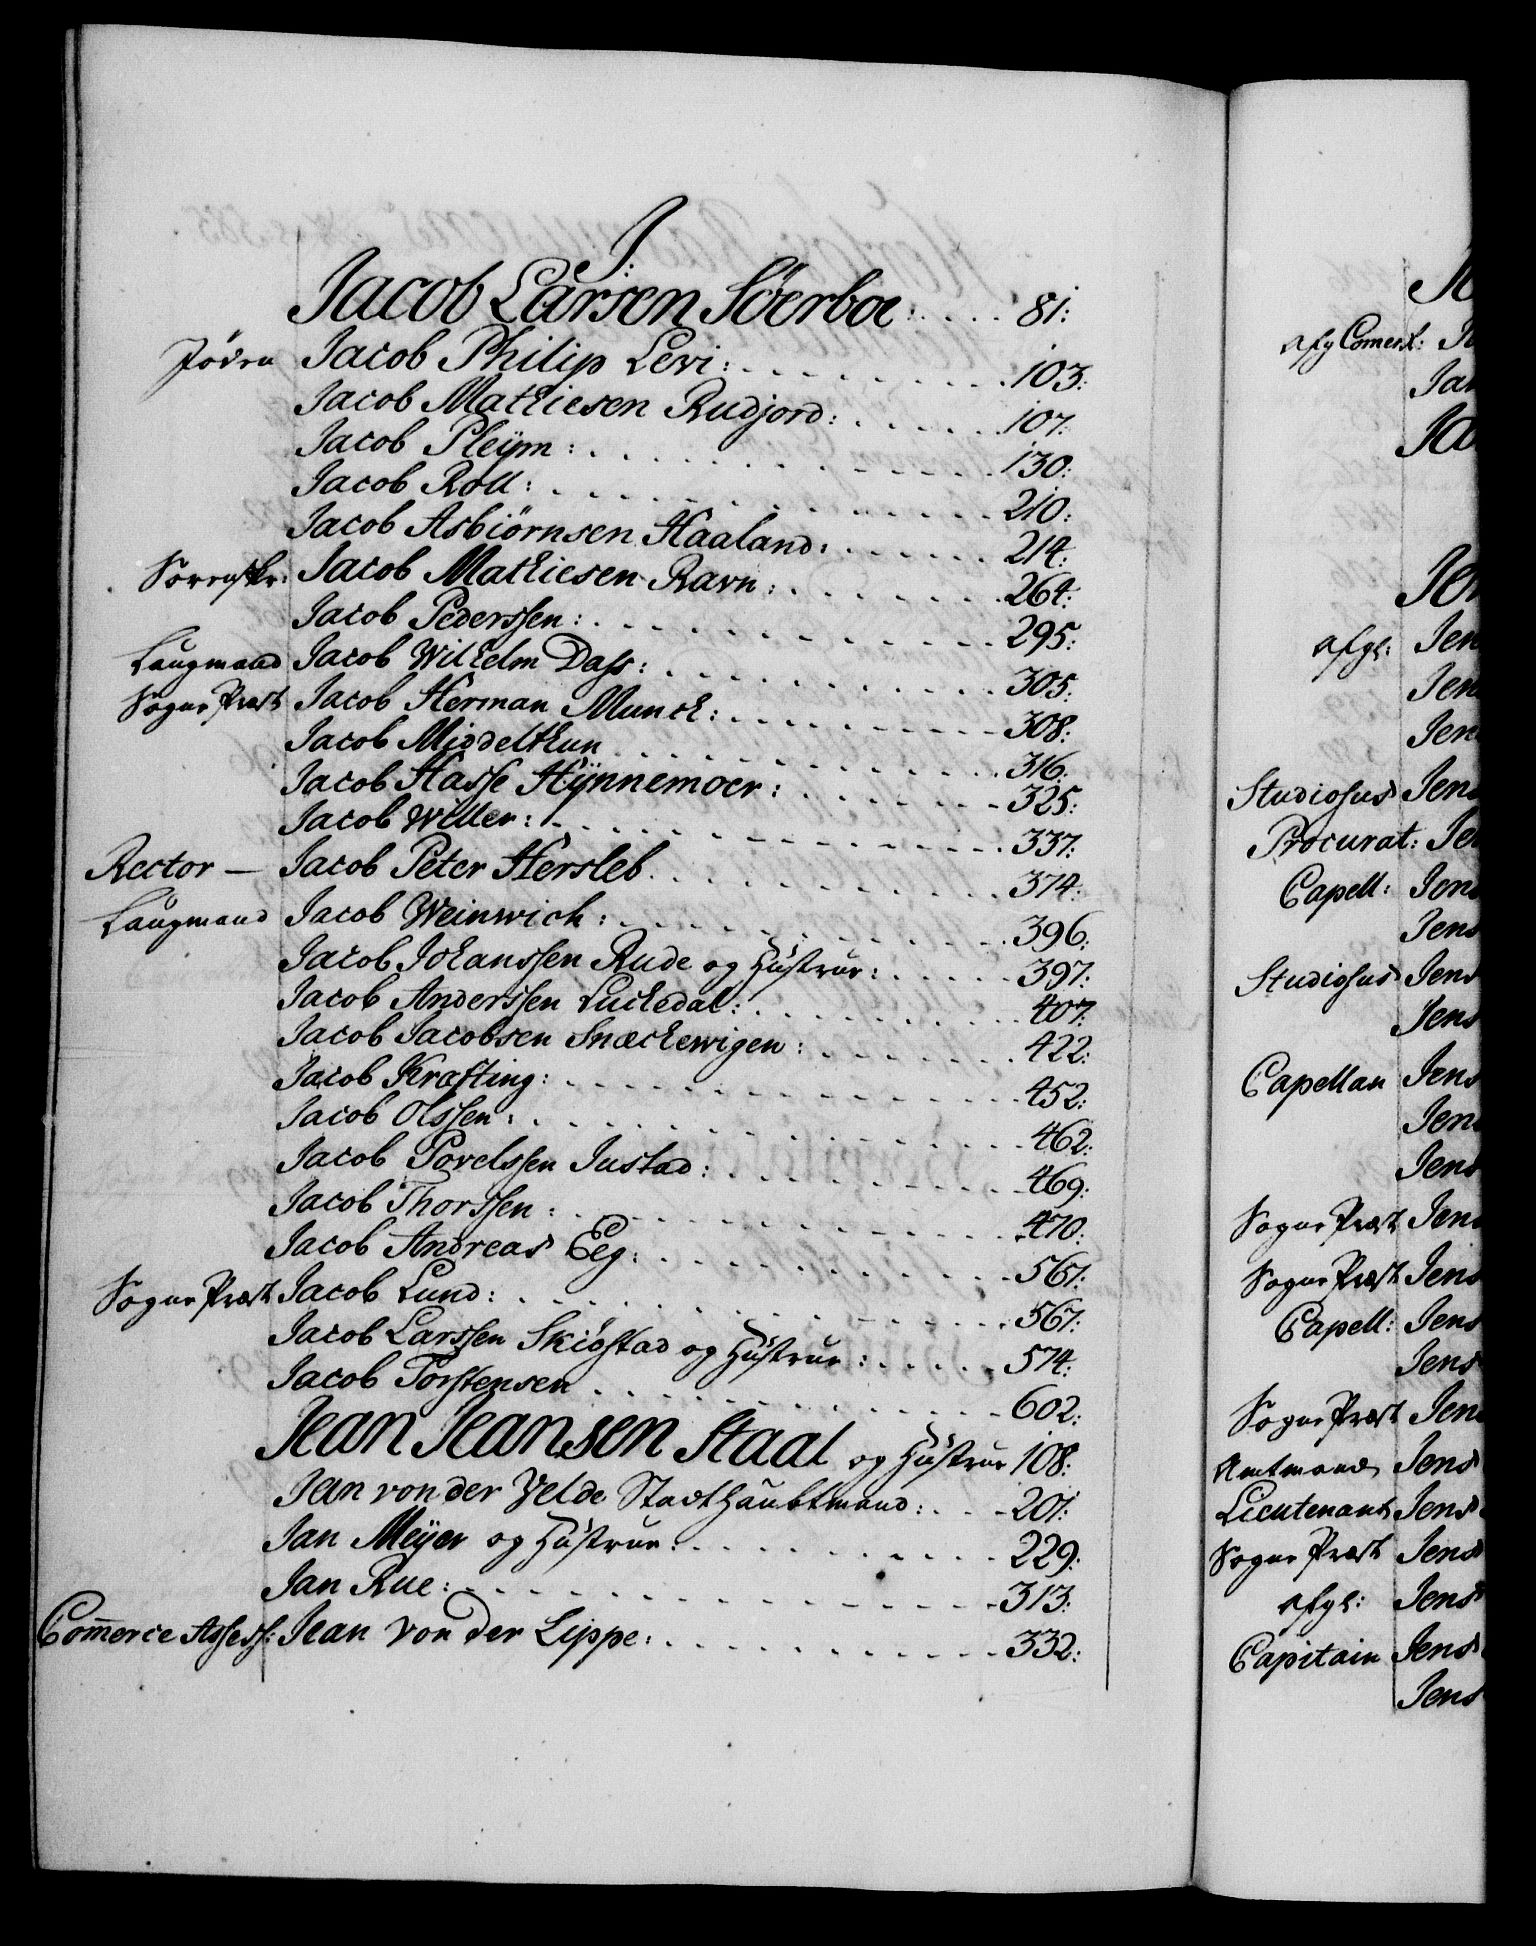 J:
Jacob Larsen Söerboe: 81:
Jøden Jacob Philip Levi: 103:
Jacob Mathiesen Rudjord: 107:
Jacob Pleÿm: 130:
Jacob Roll: 210:
Jacob Asbiörnsen Haaland: 214:
Sorenskr: Jacob Mathiesen Ravn: 264:
Jacob Pederssen: 295:
Laugmand Jacob Wilhelm Dass: 305:
Sogne Præst Jacob Herman Munch: 308:
Jacob Middelthun 316:
Jacob Hasse Hÿnnemoer: 325:
Jacob Willer: 337:
Rector — Jacob Peter Hersleb 374:
Laugmand Jacob Weinwich: 396:
Jacob Johanssen Rude og Hustrue: 397:
Jacob Anderssen Luchedal: 407:
Jacob Jacobsen Snæchewigen: 422:
Jacob Kræfting: 452:
Jacob Olssen: 462:
Jacob Povelssen Justad: 469:
Jacob Thorssen: 470:
Jacob Andreas Eeg: 567:
Sogne Præst Jacob Lund: 567:
Jacob Larssen Skiøstad og Hustrue: 574:
Jacob Torstensen 602:
Jean Jeansen Staal og Hustrue 108:
Jean von der Velde Stadthaubtmand: 201:
Jan Meÿer og Hustrue: 229:
Jan Rue: 313:
Com̅erce Assess: Jean von der Lippe: 332:
afg Comerf:
Jan
afgl: Jen
Jen
Jen
Studiosus Jens
Procurat: Jen
Capell: Jens
Jens
Studiosus Jens
Jens
Capellan Jens
Jens
Jens
Sogne Præst Jens
Sogne Præst Jens
Capell: Jens
Jens
Sogne Præst Jens
Amtmand Jens
Lieutenant Jens
Sogne Præst Jens
afgl: Jens
Capitain Jens
Jens